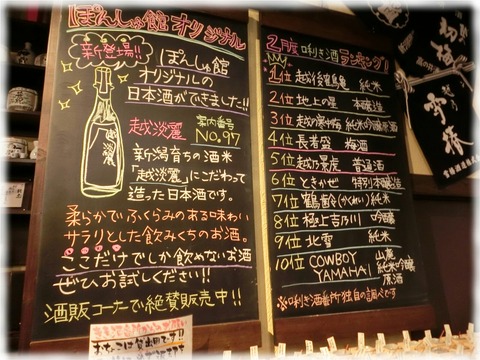 ぽんしゅ館オリジナル
新登場!!
ぽんしゅ館
オリジナルの
日本酒ができました!!
越淡麗
越淡麗 案内番号
NO.97
新潟育ちの酒米
「越淡麗」にこだわって
造った日本酒です。
柔らかでふくらみのある味わい
サラリとした飲みくちのお酒。
ここだけでしか飲めないお酒
ぜひお試しください!!
酒販コーナーで絶賛販売中!!
2月度 唎き酒ランキング!
1位 越後鶴亀 純米
2位 地上の星 本醸造
3位 越の爽やか 純米吟醸原酒
4位 長者盛 梅酒
5位 越乃景虎 普通酒
6位 ときかぜ 特別本醸造
7位 鶴齢(かくれい) 純米
8位 極上吉乃川 吟醸
9位 北雪 純米
10位 COWBOY YAMAHAI 山廃 純米吟醸 原酒
※唎き酒番所独自の調べです
雪椿